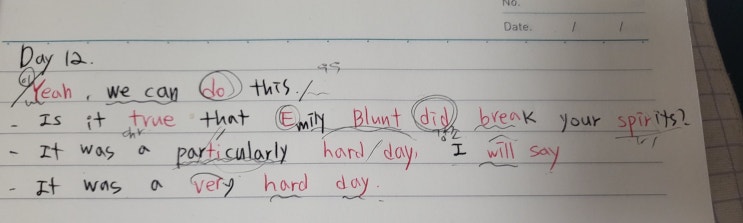 No.
Date. / /
Day 12.
Yeah, we can do this.
- Is it true that Emily Blunt did break your spirits?
- It was a particularly hard/day, I will say
- It was a very hard day.